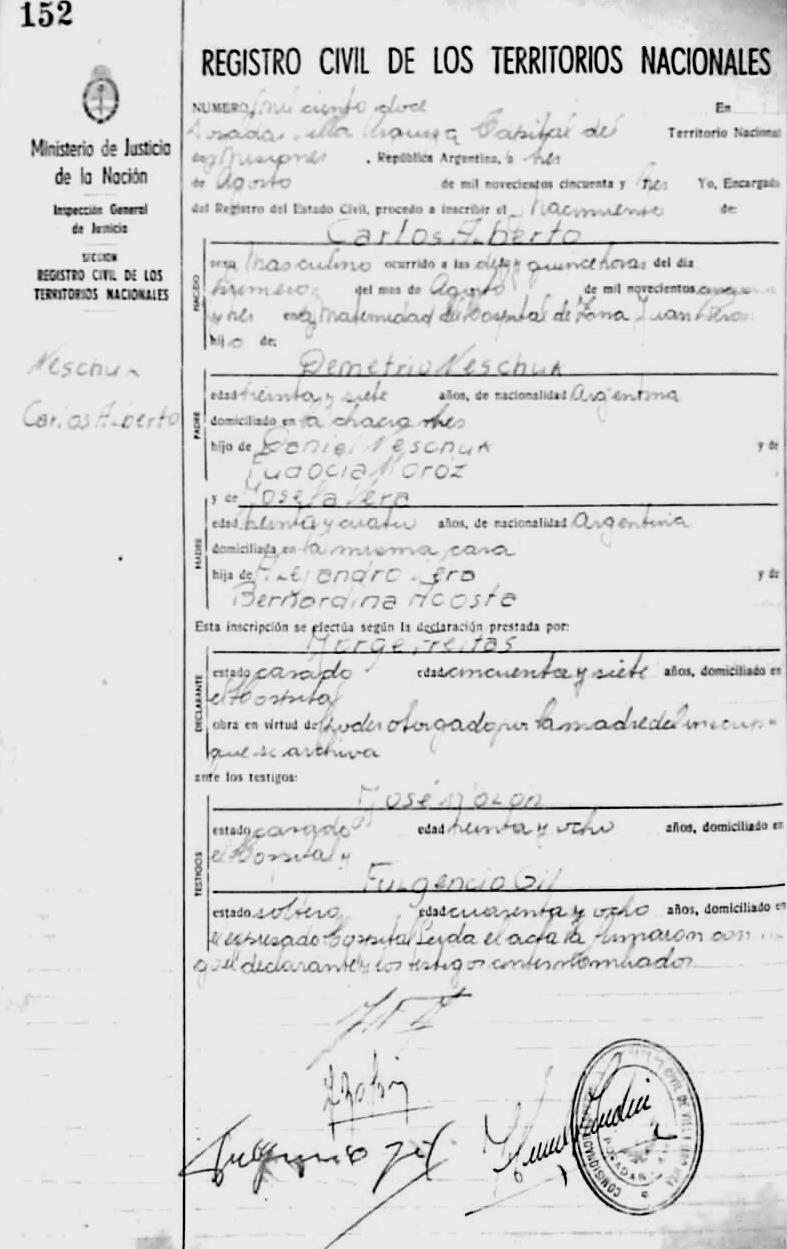 152
Ministerio de Justicia
de la Nación
Inspección General
de Justicia
SECCION
REGISTRO CIVIL DE LOS
TERRITORIOS NACIONALES
Neschuk
Carlos Alberto
REGISTRO CIVIL DE LOS TERRITORIOS NACIONALES
NUMERO mil ciento doce En
Posadas Villa Urquiza Capital del Territorio Nacional
de Misiones, República Argentina, a tres
de Agosto de mil novecientos cincuenta y tres Yo, Encargado
del Registro del Estado Civil, procedo a inscribir el Nacimiento de:
Carlos Alberto
NACIDO
sexo Masculino ocurrido a las quince horas del día
primero del mes de Agosto de mil novecientos cincuenta
y tres en la Maternidad del Hospital de Zona Juan Perón
hijo de:
Demetrio Neschuk
PADRE
edad treinta y siete años, de nacionalidad Argentina
domiciliado en la chacra tres
hijo de Daniel Neschuk y de
Eudocia Moroz
y de Josefa Vera
MADRE
edad treinta y cuatro años, de nacionalidad Argentina
domiciliada en la misma casa
hija de Alejandro Vera y de
Bernardina Acosta
Esta inscripción se efectúa según la declaración prestada por:
Jorge Freitas
DECLARANTE
estado casado edad cincuenta y siete años, domiciliado en
el Hospital
obra en virtud de Poder otorgado por la madre del
que se archiva
ante los testigos:
José
TESTIGOS
estado casado edad treinta y ocho años, domiciliado en
el Hospital y
Fulgencio Gil
estado soltero edad cuarenta y ocho años, domiciliado en
el expresado Hospital Leida el acta la firmaron con
el declarante y los testigos
Fulgencio Gil
POSADAS